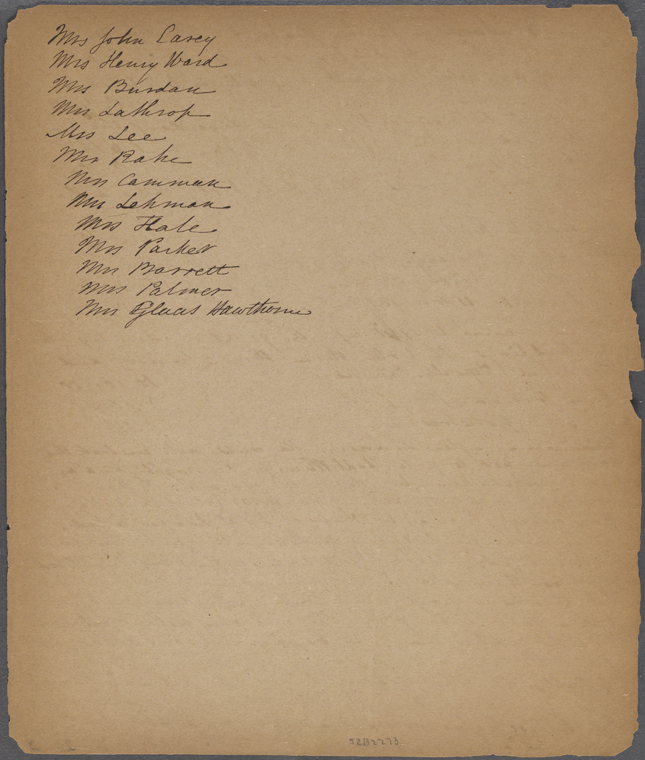 Mrs John Carey
Mrs Henry Ward
Mrs Burdan
Mrs Lathrop
Mrs Lee
Mrs Rake
Mrs Camman
Mrs Lehman
Mrs Hale
Mrs Parker
Mrs Barrett
Mrs Palmer
Mrs Hawthorne